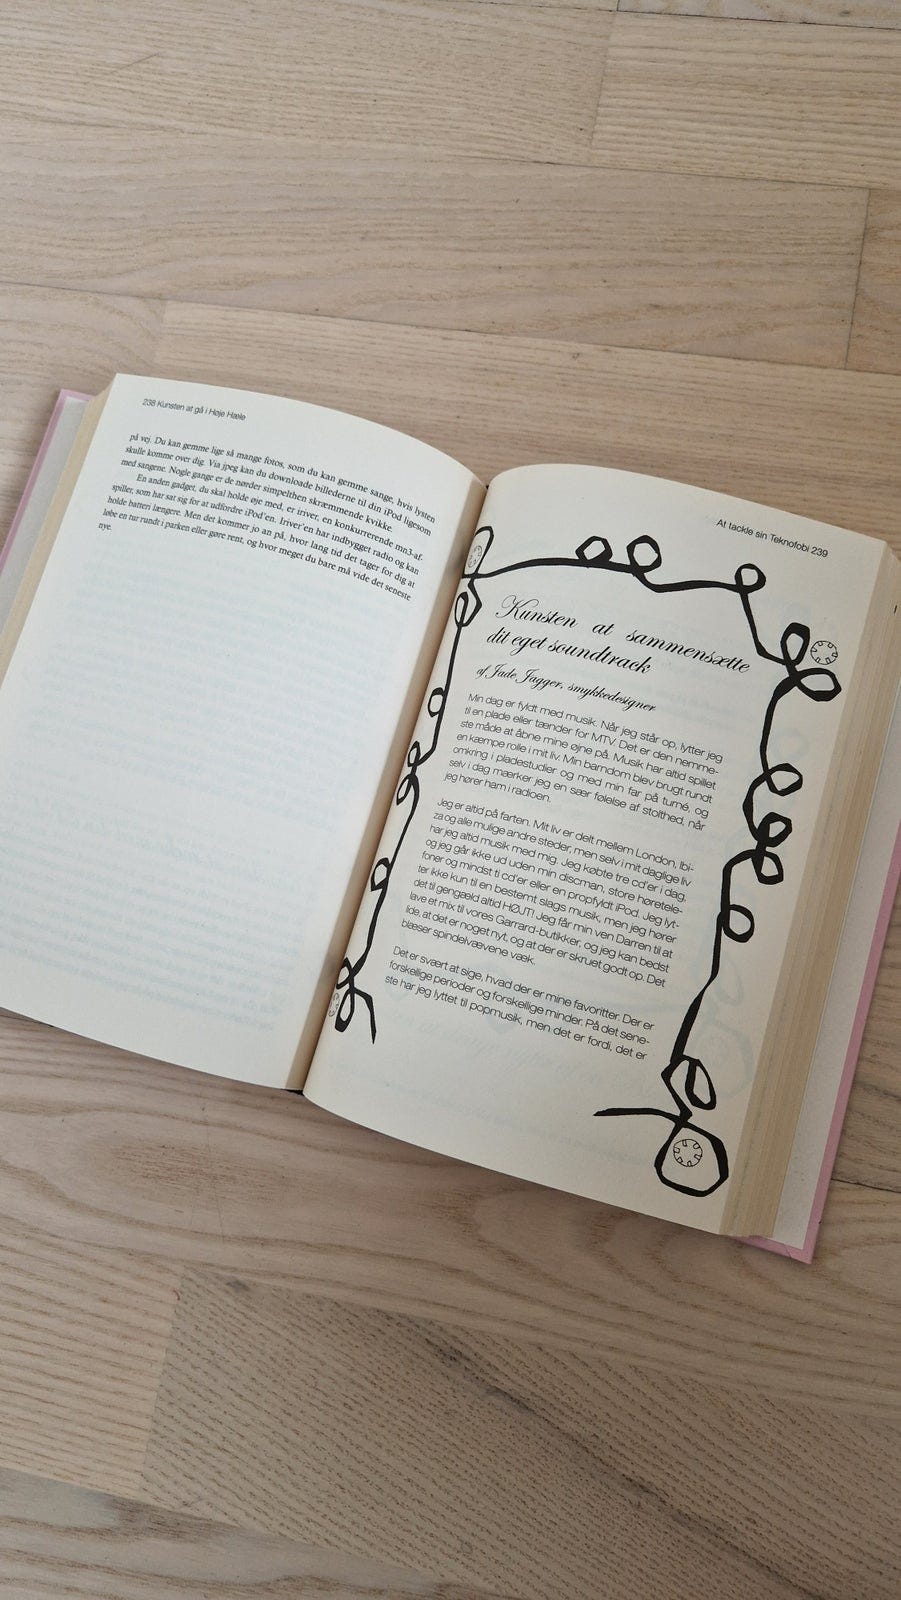 238 Kunsten at gå i Høje Hæle
på vej. Du kan gemme lige så mange fotos, som du kan gemme sange, hvis lysten
skulle komme over dig. Via jpeg kan du downloade billederne til din iPod ligesom
med sangene. Nogle gange er de nørder simpelthen skræmmende kvikke.
En anden gadget, du skal holde øje med, er iriver, en konkurrerende mn3-af-
spiller, som har sat sig for at udfordre iPod'en. Iriver'en har indbygget radio og kan
holde batteri længere. Men det kommer jo an på, hvor lang tid det tager for dig at
løbe en tur rundt i parken eller gøre rent, og hvor meget du bare må vide det seneste
nye.
At tackle sin Teknofobi 239
Kunsten at sammensætte
dit eget soundtrack
af Jade Jagger, smykkedesigner
Min dag er fyldt med musik. Når jeg står op, lytter jeg
til en plade eller tænder for MTV. Det er den nemme-
ste måde at åbne mine øjne på. Musik har altid spillet
en kæmpe rolle i mit liv. Min barndom blev brugt rundt
omkring i pladestudier og med min far på turné, og
selv i dag mærker jeg en sær følelse af stolthed, når
jeg hører ham i radioen.
Jeg er altid på farten. Mit liv er delt mellem London, Ibi-
za og alle mulige andre steder, men selv i mit daglige liv
har jeg altid musik med mig. Jeg købte tre cd'er i dag,
og jeg går ikke ud uden min discman, store høretele-
foner og mindst ti cd'er eller en propfyldt iPod. Jeg lyt-
ter ikke kun til en bestemt slags musik, men jeg hører
det til gengæld altid HØJT! Jeg får min ven Darren til at
lave et mix til vores Garrard-butikker, og jeg kan bedst
lide, at det er noget nyt, og at der er skruet godt op. Det
blæser spindelvævene væk.
Det er svært at sige, hvad der er mine favoritter. Der er
forskellige perioder og forskellige minder. På det sene-
ste har jeg lyttet til popmusik, men det er fordi, det er